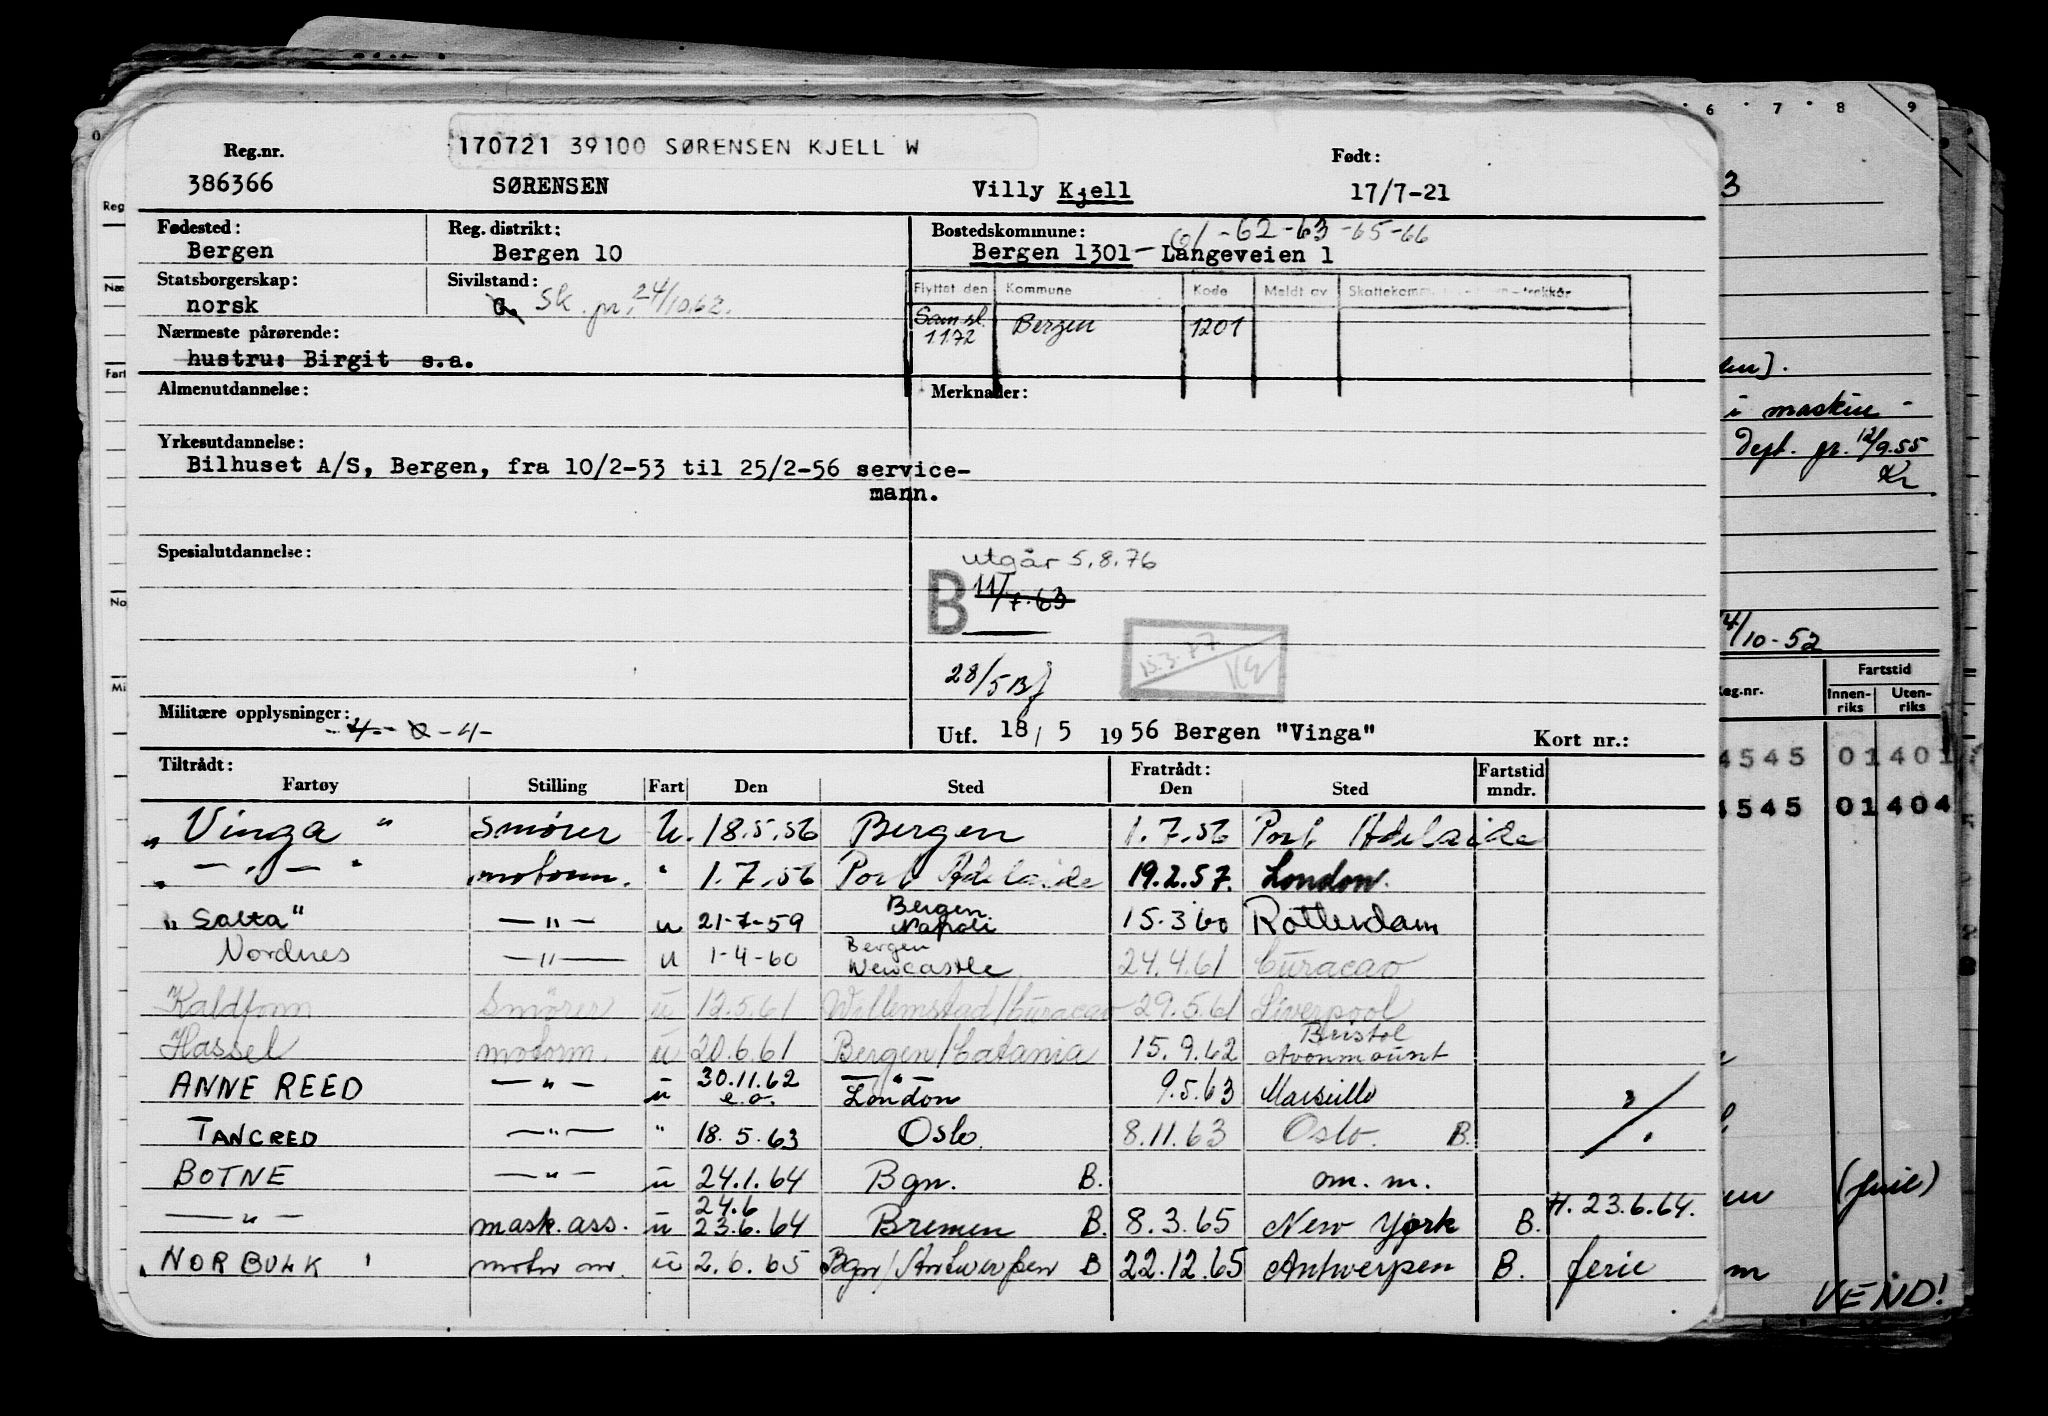 170721 39100 SØRENSEN KJELL W
Reg.nr. Født:
386366 SØRENSEN Villy Kjell 17/7-21
Fødested: Reg. distrikt: Bostedskommune: 61-62-63-65-66
Bergen Bergen 10 Bergen 1301 — Langeveien 1
Statsborgerskap: Sivilstand: Flyttet den Kommune Kode Meldt av
norsk G. Sk. pr. 24/10.62. Sam.sl. 1172 Bergen 1201
Nærmeste pårørende:
hustru: Birgit s.a.
Almenutdannelse: Merknader:
Yrkesutdannelse:
Bilhuset A/S, Bergen, fra 10/2-53 til 25/2-56 service-
mann.
Spesialutdannelse: utgår 5.8.76
B 11/7-63
28/5 Bf 15.3.77
Militære opplysninger: -4-
Utf. 18/5 1956 Bergen "Vinga" Kort nr.:
Tiltrådt: Fratrådt: Fartstid
Fartøy Stilling Fart Den Sted Den Sted mndr.
"Vinga" Smører U. 18.5.56 Bergen 1.7.56 Port Adelaide
" — " — " motorm. " 1.7.56 Port Adelaide 19.2.57. London.
"Salta" — " — u 21-7-59 Bergen Napoli 15.3.60 Rotterdam
Nordnes — " — u 1-4-60 Bergen Newcastle 24.4.61 Curacao
Kaldfonn Smører u 12.5.61 Willemstad/Curacao 29.5.61 Liverpool
Hassel motorm. u 20.6.61 Bergen/Catania 15.9.62 Bristol Avonmount
ANNE REED — " — u 30.11.62 e.o. — " — London 9.5.63 Marseille
TANCRED — " — " 18.5.63 Oslo. 8.11.63 Oslo. B.
BOTNE — " — u 24.1.64 Bgn. B. om. m.
— " — mask.ass. u 24.6 23.6.64 Bremen B. 8.3.65 New York B. H. 23.6.64.
NORBULK motor m. u 2.6.65 Bgn/Antwerpen B 22.12.65 Antwerpen B. ferie
6 7 8 9
3
i maskin -
Dept. pr. 12/9.55
Kr
/10-52
eg.nr. Fartstid
Innen-riks Uten-riks
4545 01 401
4545 01 404
(ferie)
m
VEND!